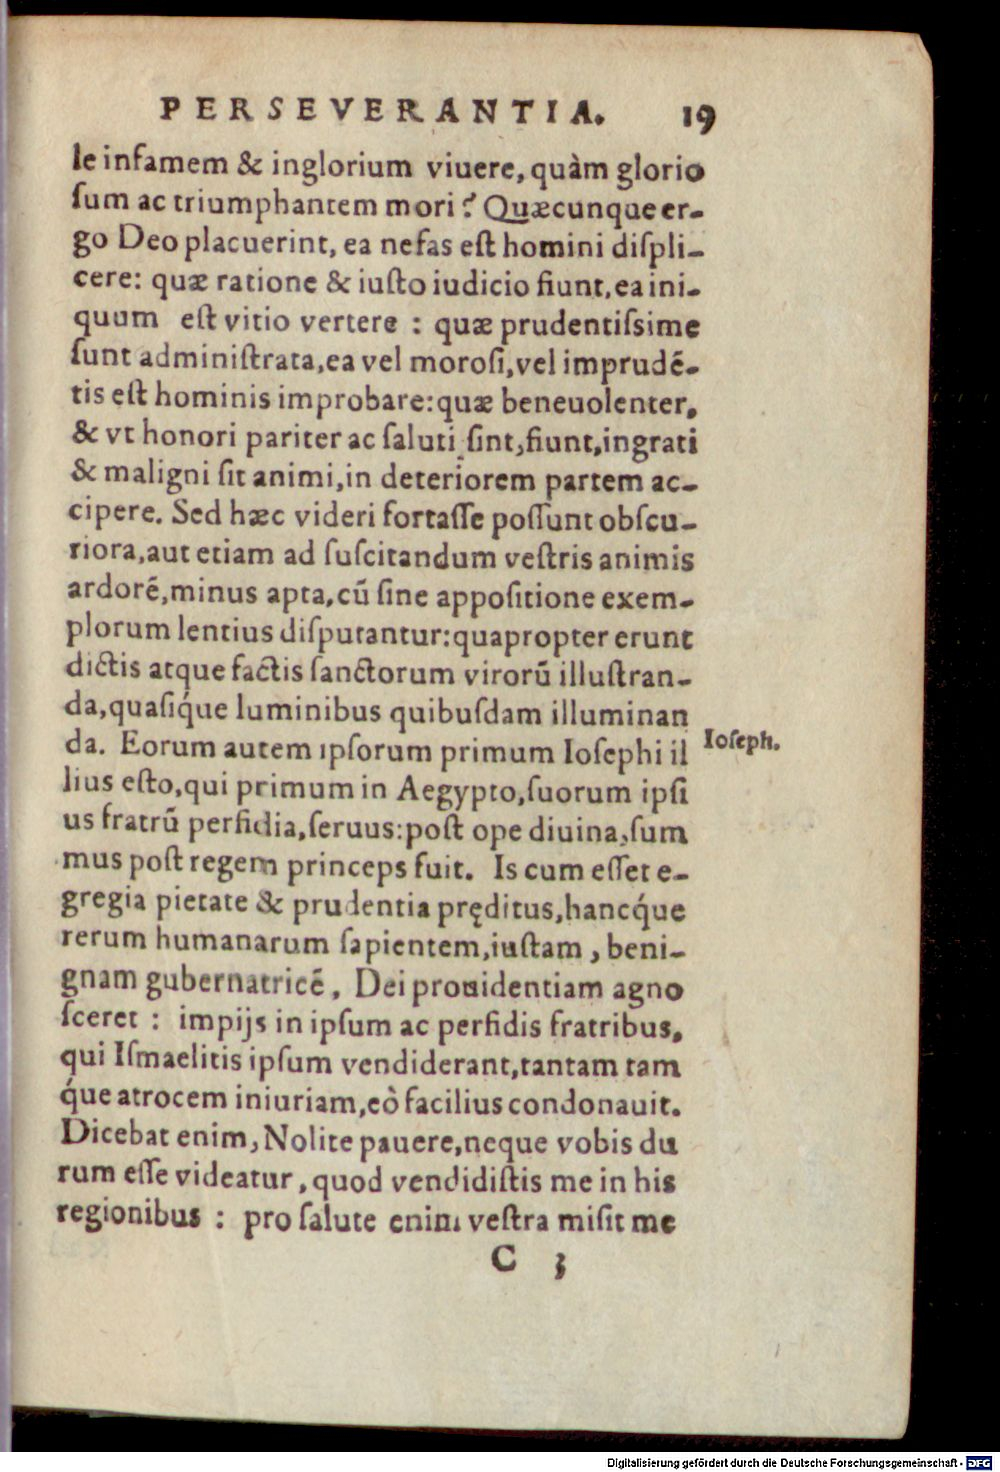 PERSEVERANTIA. 19
le infamem & inglorium viuere, quàm glorio
ſum ac triumphantem mori? Quæcunque er-
go Deo placuerint, ea nefas eſt homini diſpli-
cere: quæ ratione & iuſto iudicio fiunt, ea ini-
quum eſt vitio vertere : quæ prudentiſsime
ſunt adminiſtrata, ea vel moroſi, vel imprudē-
tis eſt hominis improbare: quæ beneuolenter,
& vt honori pariter ac ſaluti ſint, fiunt, ingrati
& maligni ſit animi, in deteriorem partem ac-
cipere. Sed hæc videri fortaſſe poſſunt obſcu-
riora, aut etiam ad ſuſcitandum veſtris animis
ardorē, minus apta, cū ſine appoſitione exem-
plorum lentius diſputantur: quapropter erunt
dictis atque factis ſanctorum virorū illuſtran-
da, quaſiq́ue luminibus quibuſdam illuminan
da. Eorum autem ipſorum primum Ioſephi il
Ioſeph.
lius eſto, qui primum in Aegypto, ſuorum ipſi
us fratrū perfidia, ſeruus: poſt ope diuina, ſum
mus poſt regem princeps fuit. Is cum eſſet e-
gregia pietate & prudentia pręditus, hancq́ue
rerum humanarum ſapientem, iuſtam, beni-
gnam gubernatricē, Dei prouidentiam agno
ſceret : impijs in ipſum ac perfidis fratribus,
qui Iſmaelitis ipſum vendiderant, tantam tam
q́ue atrocem iniuriam, eò facilius condonauit.
Dicebat enim, Nolite pauere, neque vobis du
rum eſſe videatur, quod vendidiſtis me in his
regionibus : pro ſalute enim veſtra miſit me
C 3
Digitalisierung gefördert durch die Deutsche Forschungsgemeinschaft - DFG